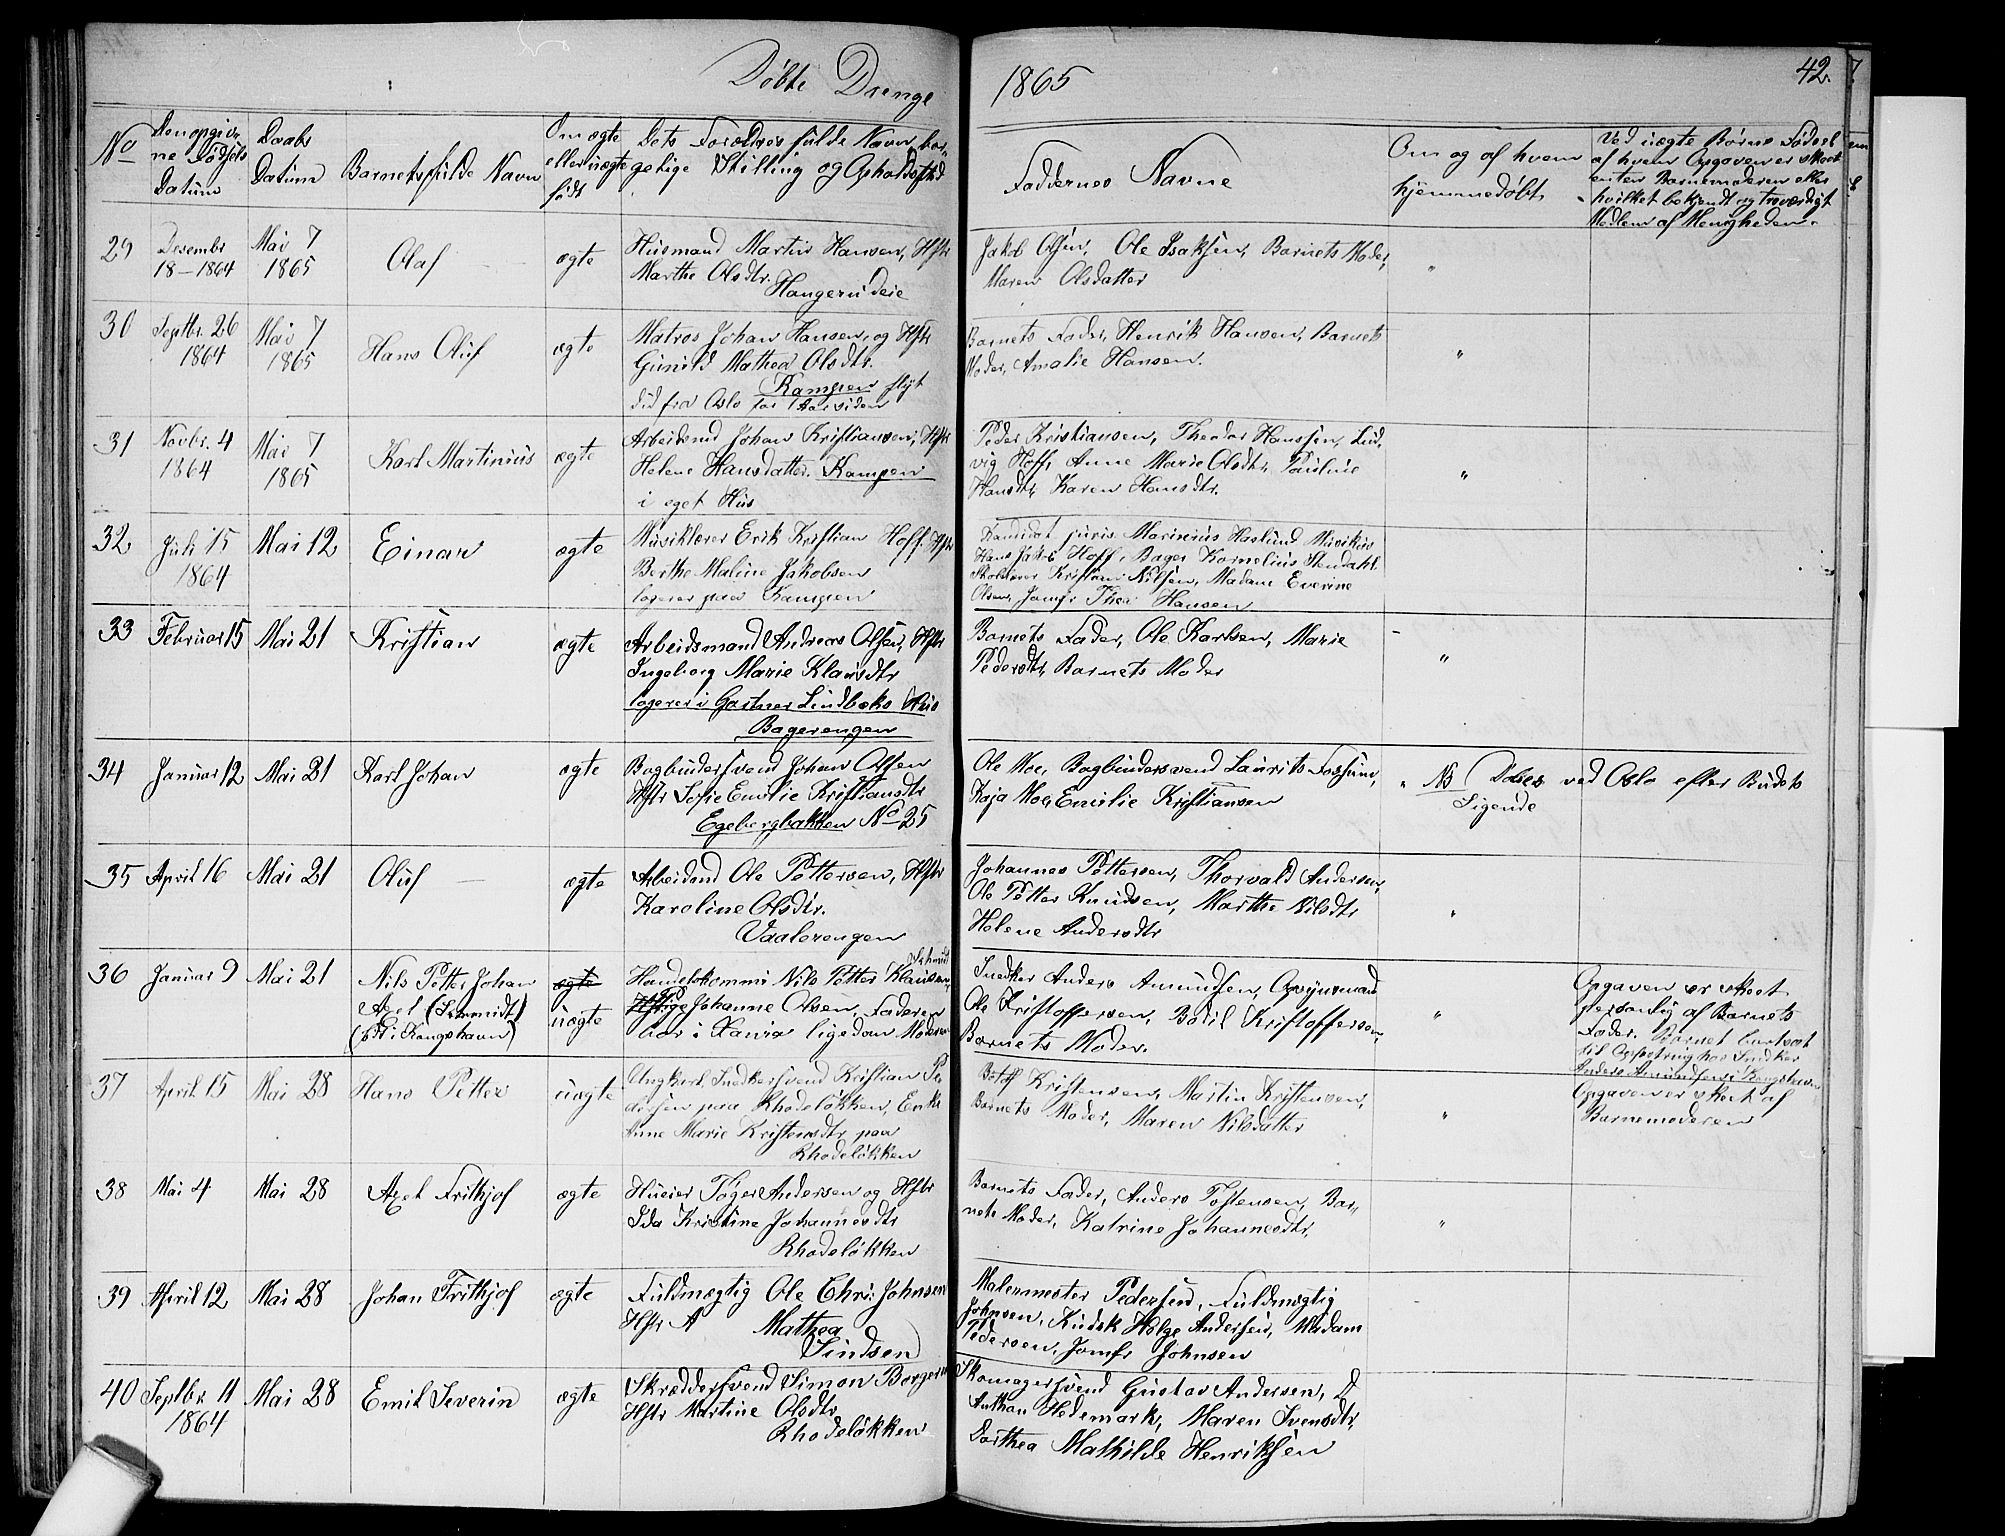 Døbte Drenge
1865
42.
No
Den opgiv-
ne Fødsels
Datum
Daabs
Datum
Barnets fulde Navn
Om ægte
eller uægte
født
Dets Forældres fulde Navn, bor-
gelige Stilling og Opholdssted
Faddernes Navne
Om og af hvem
hjemmedøbt
Ved uægte Børns Fødsel
af hvem Opgaven er skeet
enten Barnemoderen eller
hvilket bekjendt og troværdigt
Medlem af Menigheden.
29
Desembr
18-1864
Mai 7
1865
Olaf
ægte
Husmand Martin Hansen, Hstr
Marthe Olsdtr.
Haugerudeie
Jakob Olsen, Ole Isaksen, Barnets Moder,
Maren Olsdatter
"
30
Septbr. 26
1864
Mai 7
1865
Hans Oluf
ægte
Matros Johan Hansen, og Hstr
Gunild Mathea Olsdtr.
Kampen flyt
did fra Oslo for 1 Aar siden
Barnets Fader, Henrik Hansen, Barnets
Moder, Amalie Hansen.
"
31
Novbr. 4
1864
Mai 7
1865
Karl Martinius
ægte
Arbeidsmd Johan Kristiansen, Hstr
Helene Hansdatter. Kampen
i eget Hus
Peder Kristiansen, Theodor Hanssen, Lud-
vig Hoff, Anne Marie Olsdtr, Pauline
Hansdtr, Karen Hansdtr.
"
32
Juli 15
1864
Mai 12
Einar
ægte
Musiklærer Erik Kristian Hoff. Hstr
Berthe Maline Jakobsen
logerer paa Kampen
Kandidat juris Marinius Haslund Musikus
Hans Jakob Hoff, Bager Kornelius Stendahl.
Skolelærer Kristian Nilsen, Madam Everine
Olsen, Jomfr Thea Hansen
33
Februar 15
Mai 21
Kristian
ægte
Arbeidsmand Andreas Olsen, Hstr
Ingeborg Marie Klausdtr
logerer i Gartner Lindbæks Hus
Bagerengen
Barnets Fader, Ole Karlsen, Marie
Pedersdtr, Barnets Moder
"
34
Januar 12
Mai 21
Karl Johan
ægte
Bogbindersvend Johan Olsen
Hstr Sofie Emilie Kristiansdtr
Egebergbakken No 25
Ole Moe, Bogbindersvend Laurits Fossum,
Kaja Moe, Emilie Kristiansen
" NB Døbes ved Oslo efter Budets
Sigende
35
April 16
Mai 21
Oluf
ægte
Arbeidsmd Ole Pettersen, Hstr
Karoline Olsdtr.
Vaalerengen
Johannes Pettersen, Thorvald Andersen,
Ole Petter Knudsen, Marthe Nilsdtr
Helene Andersdtr
"
36
Januar 9
Mai 21
Nils Petter Johan
Axel (Schmidt)
(født i Kongshavn)
ægte
uægte
Schmidt
Handelskommis Nils Petter Klausen,
Pige Johanne Olsen, Faderen
bor i Xania ligedan Moderen
Snedker Anders Amundsen, Opsynsmand
Ole Kristoffersen, Bodil Kristoffersen,
Barnets Moder.
"
Opgaven er skeet
personlig af Barnets
Fader. Barnet bortsat
til Opfostring hos Snedker
Anders Amundsen i Kongshavn
37
April 15
Mai 28
Hans Petter
uægte
Ungkarl Snedkersvend Kristian Pe-
dersen paa Rhodeløkken, Enke
Anne Marie Kristensdtr paa
Rhodeløkken
Botolf Kristensen, Martin Kristensen,
Barnets Moder, Maren Nilsdatter
"
Opgaven er skeet af
Barnemoderen
38
Mai 4
Mai 28
Axel Frithjof
ægte
Huseier Tøger Andersen og Hstr
Ida Kristine Johannesdtr
Rhodeløkken
Barnets Fader, Anders Tostensen, Bar-
nets Moder, Katrine Johannesdtr,
"
39
April 12
Mai 28
Johan Frithjof
ægte
Fuldmægtig Ole Chr: Johnsen
Hstr A Mathea
Lindsen
Malermester Pedersen, Fuldmægtig
Johnsen, Kudsk Helge Andersen, Madam
Pedersen, Jomfr Johnsen
40
Septbr 11
1864
Mai 28
Emil Severin
ægte
Skræddersvend Simon Borgersen
Hstr Martine Olsdtr
Rhodeløkken
Skomagersvend Gustav Andersen, D
Anthon Hedemark, Maren Svensdtr,
Dorthea Mathilde Henriksen